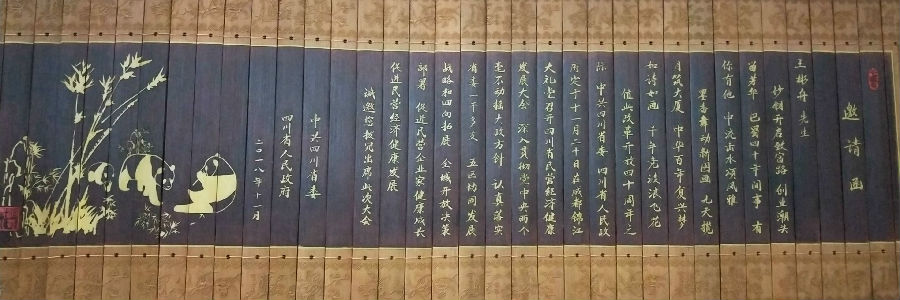 邀请函
王彬舟 先生
妙钥开启致富路 创业潮头
留芳华 巴蜀四十年间事 有
你有他 中流击水颂风雅
墨香舞动新图画 九天揽
月筑大厦 中华百年复兴梦
如诗如画 千年亮波浪飞花
值此改革开放四十周年之
际 中共四川省委 四川省人民政
府定于十一月二十日在成都锦江
大礼堂召开四川省民营经济健康
发展大会 深入贯彻党中央两个
毫不动摇大政方针 认真落实
省委一干多支 五区协同发展
战略和四向拓展 全域开放决策
部署 促进民营企业家健康成长
促进民营经济健康发展
诚邀您拨冗出席此次大会
中共四川省委
四川省人民政府
二〇一八年十一月